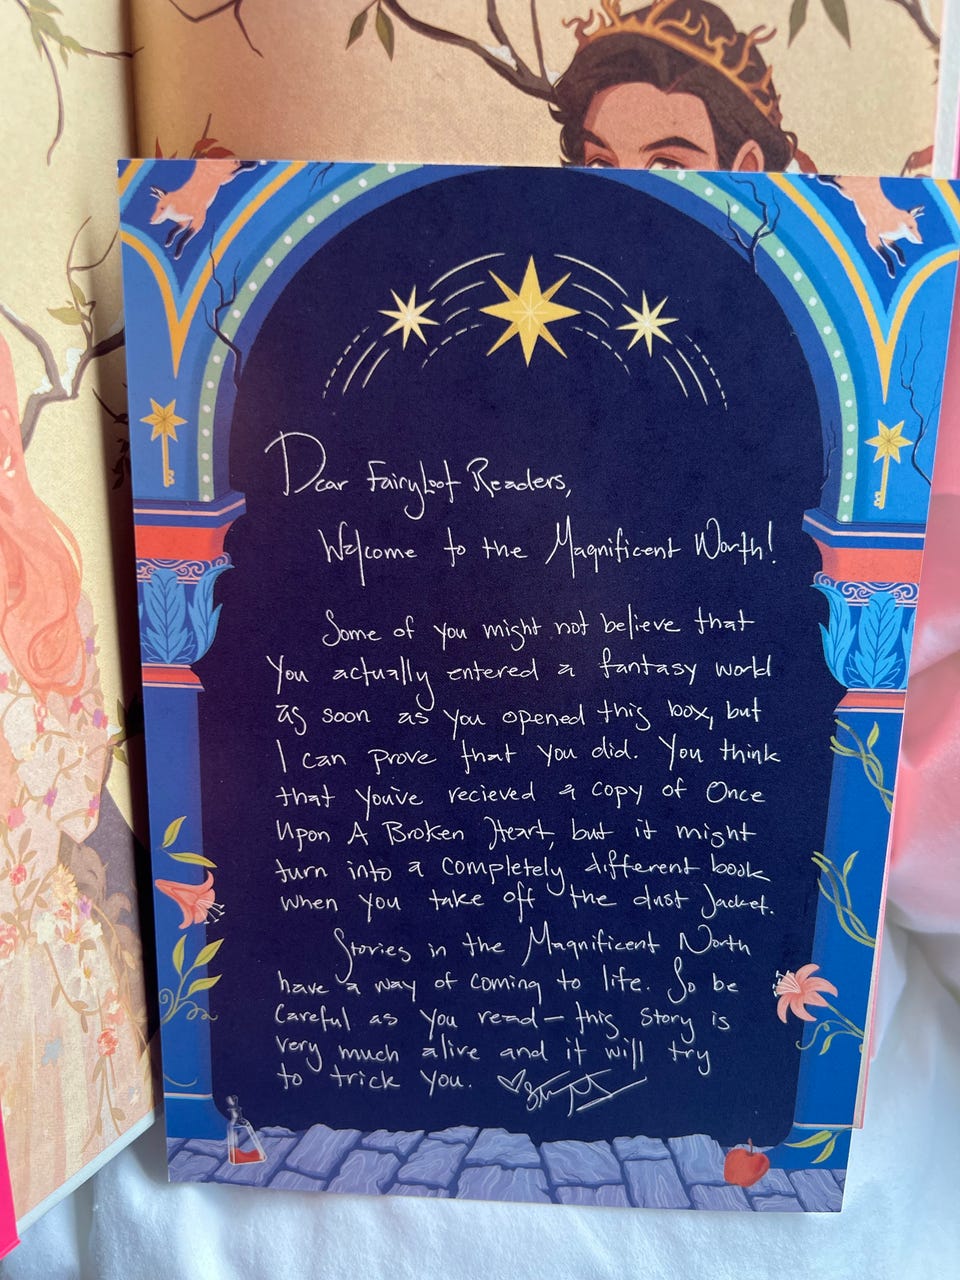 Dear FairyLoot Readers,
Welcome to the Magnificent North!
Some of you might not believe that
you actually entered a fantasy world
as soon as you opened this box, but
I can prove that you did. You think
that you've recieved a copy of Once
Upon A Broken Heart, but it might
turn into a completely different book
when you take off the dust jacket.
Stories in the Magnificent North
have a way of coming to life. So be
careful as you read — this story is
very much alive and it will try
to trick you.